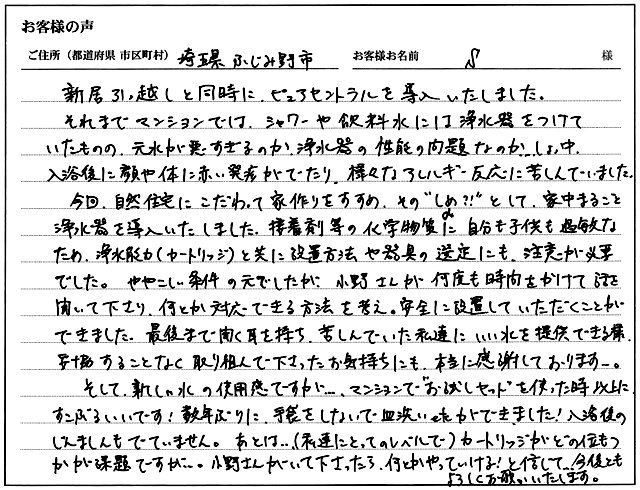 お客様の声
ご住所（都道府県 市区町村） 埼玉県 ふじみ野市 お客様お名前 S 様
新居引っ越しと同時に、ピュアセントラルを導入いたしました。
それまでマンションでは、シャワーや飲料水には浄水器をつけて
いたものの、元水が悪すぎるのか、浄水器の性能の問題なのか、しょ中、
入浴後に顔や体に赤い発疹がでたり、様々なアレルギー反応に苦しんでいました。
今回、自然住宅にこだわって家作りをすすめ、その"しめ?!"として、家中まるごと
浄水器を導入いたしました。接着剤等の化学物質に自分も子供も過敏な
ため、浄水能力(カートリッジ)と共に設置方法や器具の選定にも、注意が必要
でした。ややこしい条件の元でしたが、小野さんが何度も時間をかけて話を
聞いて下さり、何とか対応できる方法を考え。安全に設置していただくことが
できました。最後まで聞く耳を持ち、苦しんでいた私達にいい水を提供できる様、
妥協することなく取り組んで下さったお気持ちにも、本当に感謝しております…。
そして、新しい水の使用感ですが…、マンションで"お試しセット"を使った時以上に
すこぶるいいです！数年ぶりに、手袋をしないで皿洗いができました！入浴後の
じんましんもでていません。あとは…(私達にとってのレベルで)カートリッジがどの位もつ
かが課題ですが…。小野さんがいて下さったら、何とかやっていける！と信じて、今後とも
よろしくお願いいたします。